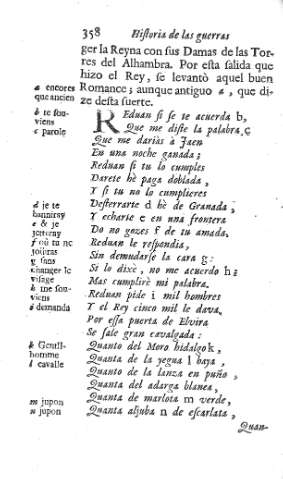 358 Historia de las guerras
ger la Reyna con sus Damas de las Tor-
res del Alhambra. Por esta salida que
hizo el Rey, se levantò aquel buen
Romance; aunque antiguo a, que di-
ze desta suerte.
REduan si se te acuerda b,
Que me diste la palabra, c
Que me darias à Jaen
En una noche ganada;
Reduan si tu lo cumples
Darete hè paga doblada,
Y si tu no lo cumplieres
Desterrarte d hè de Granada,
Y echarte e en una frontera
Do no gozes f de tu amada.
Reduan le respondia,
Sin demudarse la cara g:
Si lo dixe, no me acuerdo h;
Mas cumplirè mi palabra.
Reduan pide i mil hombres
Y el Rey cinco mil le dava,
Por essa puerta de Elvira
Se sale gran cavalgada:
Quanto del Moro hidalgo k,
Quanta de la yegua l baya,
Quanta de la lanza en puño,
Quanta del adarga blanca,
Quanta de marlota m verde,
Quanta aljuba n de escarlata,
Quan-
a encores
que ancien
b te sou-
viens
c parole
d je te
banniray
e & je
jetteray
f où tu ne
jouiras
g sans
changer le
visage
h me sou-
viens
i demanda
k Gentil-
homme
l cavalle
m jupon
n jupon